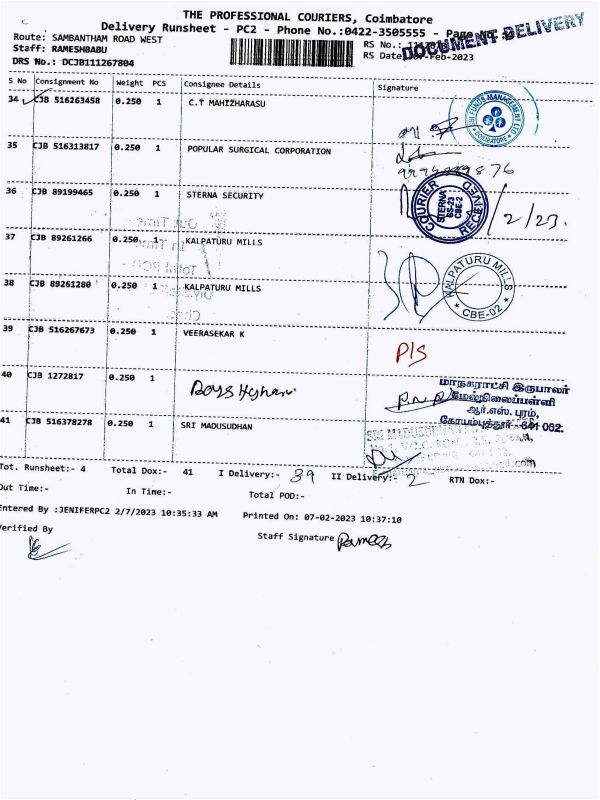 THE PROFESSIONAL COURIERS, Coimbatore
Delivery Runsheet - PC2 - Phone No.:0422-3505555 - Page No.
DOCUMENT DELIVERY
Route: SAMBANTHAM ROAD WEST
RS No.:
Staff: RAMESHBABU
RS Date: 07-Feb-2023
DRS No.: DCJB111267804
S No Consignment No Weight PCS Consignee Details Signature
34 CJB 516263458 0.250 1 C.T MAHIZHARASU
FUNDS MANAGEMENT LTD
COIMBATORE
35 CJB 516313817 0.250 1 POPULAR SURGICAL CORPORATION
36 CJB 89199465 0.250 1 STERNA SECURITY
COURIER RECEIVED
STERNA
CBE-2
/2/23.
Out Time
In Time
37 CJB 89261266 0.250 1 KALPATURU MILLS
Total POD -
38 CJB 89261280 0.250 1 KALPATURU MILLS
KALPATURU MILLS
CBE-02
39 CJB 516267673 0.250 1 VEERASEKAR K
P/S
40 CJB 1272817 0.250 1
மாநகராட்சி இருபாலர்
மேல்நிலைப்பள்ளி
ஆர்.எஸ். புரம்,
கோயம்புத்தூர் - 641 002.
41 CJB 516378278 0.250 1 SRI MADUSUDHAN
Tot. Runsheet:- 4 Total Dox:- 41 I Delivery:- 39 II Delivery:- 2 RTN Dox:-
Out Time:- In Time:- Total POD:-
Entered By :JENIFERPC2 2/7/2023 10:35:33 AM Printed On: 07-02-2023 10:37:10
Verified By
Staff Signature Ramesh